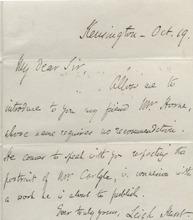 Kensington - Oct. 19.
My Dear Sir,
Allow me to
introduce to you my friend Mr Horne,
whose name requires no recommendation.
He comes to speak with you respecting the
portrait of Mr Carlyle, in connexion with
a work he is about to publish.
Ever truly yours, Leigh Hunt